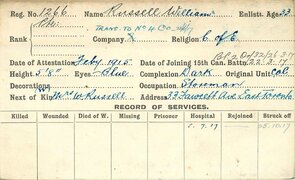 Reg. No. 1266 Name Russell William Enlistt. Age 33
Rank Pte. TRANS. TO No 4 CO.
Company Religion C of E.
Date of Attestation Feby. 1915 Date of Joining 15th Can. Battn. 22-3-17
Height 5' 8" Eyes Blue Complexion Dark Original Unit
Decorations Occupation Storeman
Next of Kin Mrs W. Russell Address 33 Fawcett Ave East Toronto
RECORD OF SERVICES.
Killed Wounded Died of W. Missing Prisoner Hospital Injured Rejoined Struck off
5.7.17 05.10.17